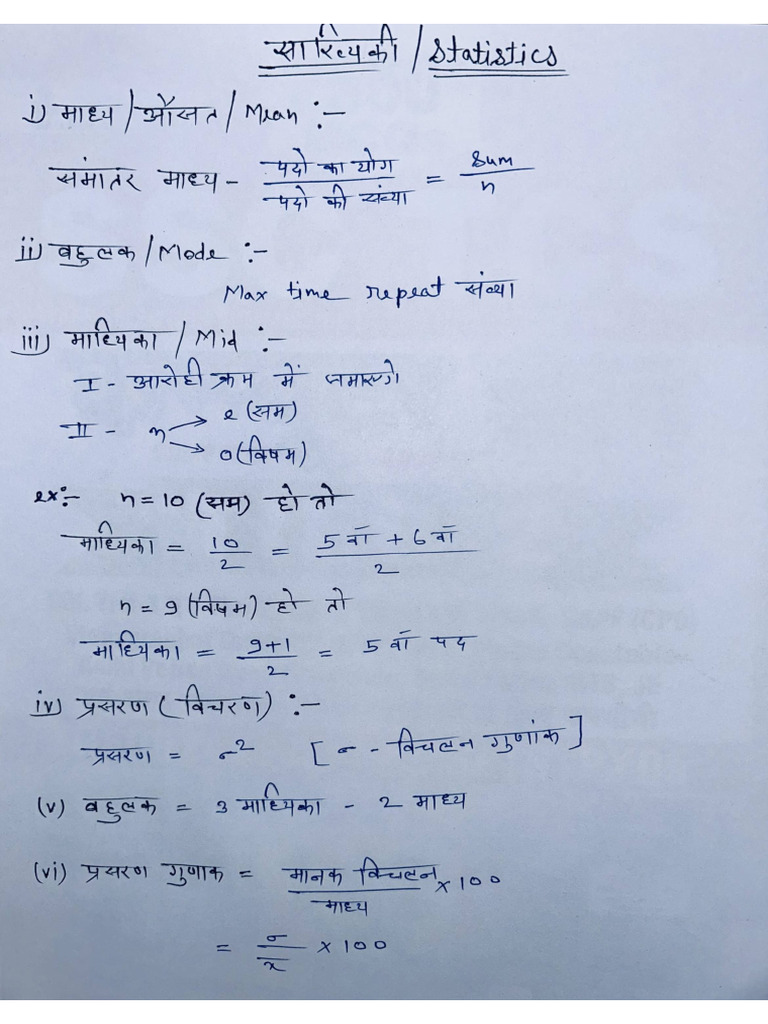 सांख्यिकी / Statistics
i) माध्य / औसत / Mean :-
समांतर माध्य - पदो का योग / पदो की संख्या = Sum / n
ii) बहुलक / Mode :-
Max time repeat संख्या
iii) माध्यिका / Mid :-
I - आरोही क्रम में जमाएगे
II - n → e (सम)
→ o (विषम)
ex:- n = 10 (सम) हो तो
माध्यिका = 10/2 = 5 वाँ + 6 वाँ / 2
n = 9 (विषम) हो तो
माध्यिका = 9+1 / 2 = 5 वाँ पद
iv) प्रसरण ( विचरण ) :-
प्रसरण = σ² [ σ - विचलन गुणांक ]
(v) बहुलक = 3 माध्यिका - 2 माध्य
(vi) प्रसरण गुणाक = मानक विचलन / माध्य × 100
= σ / x̄ × 100